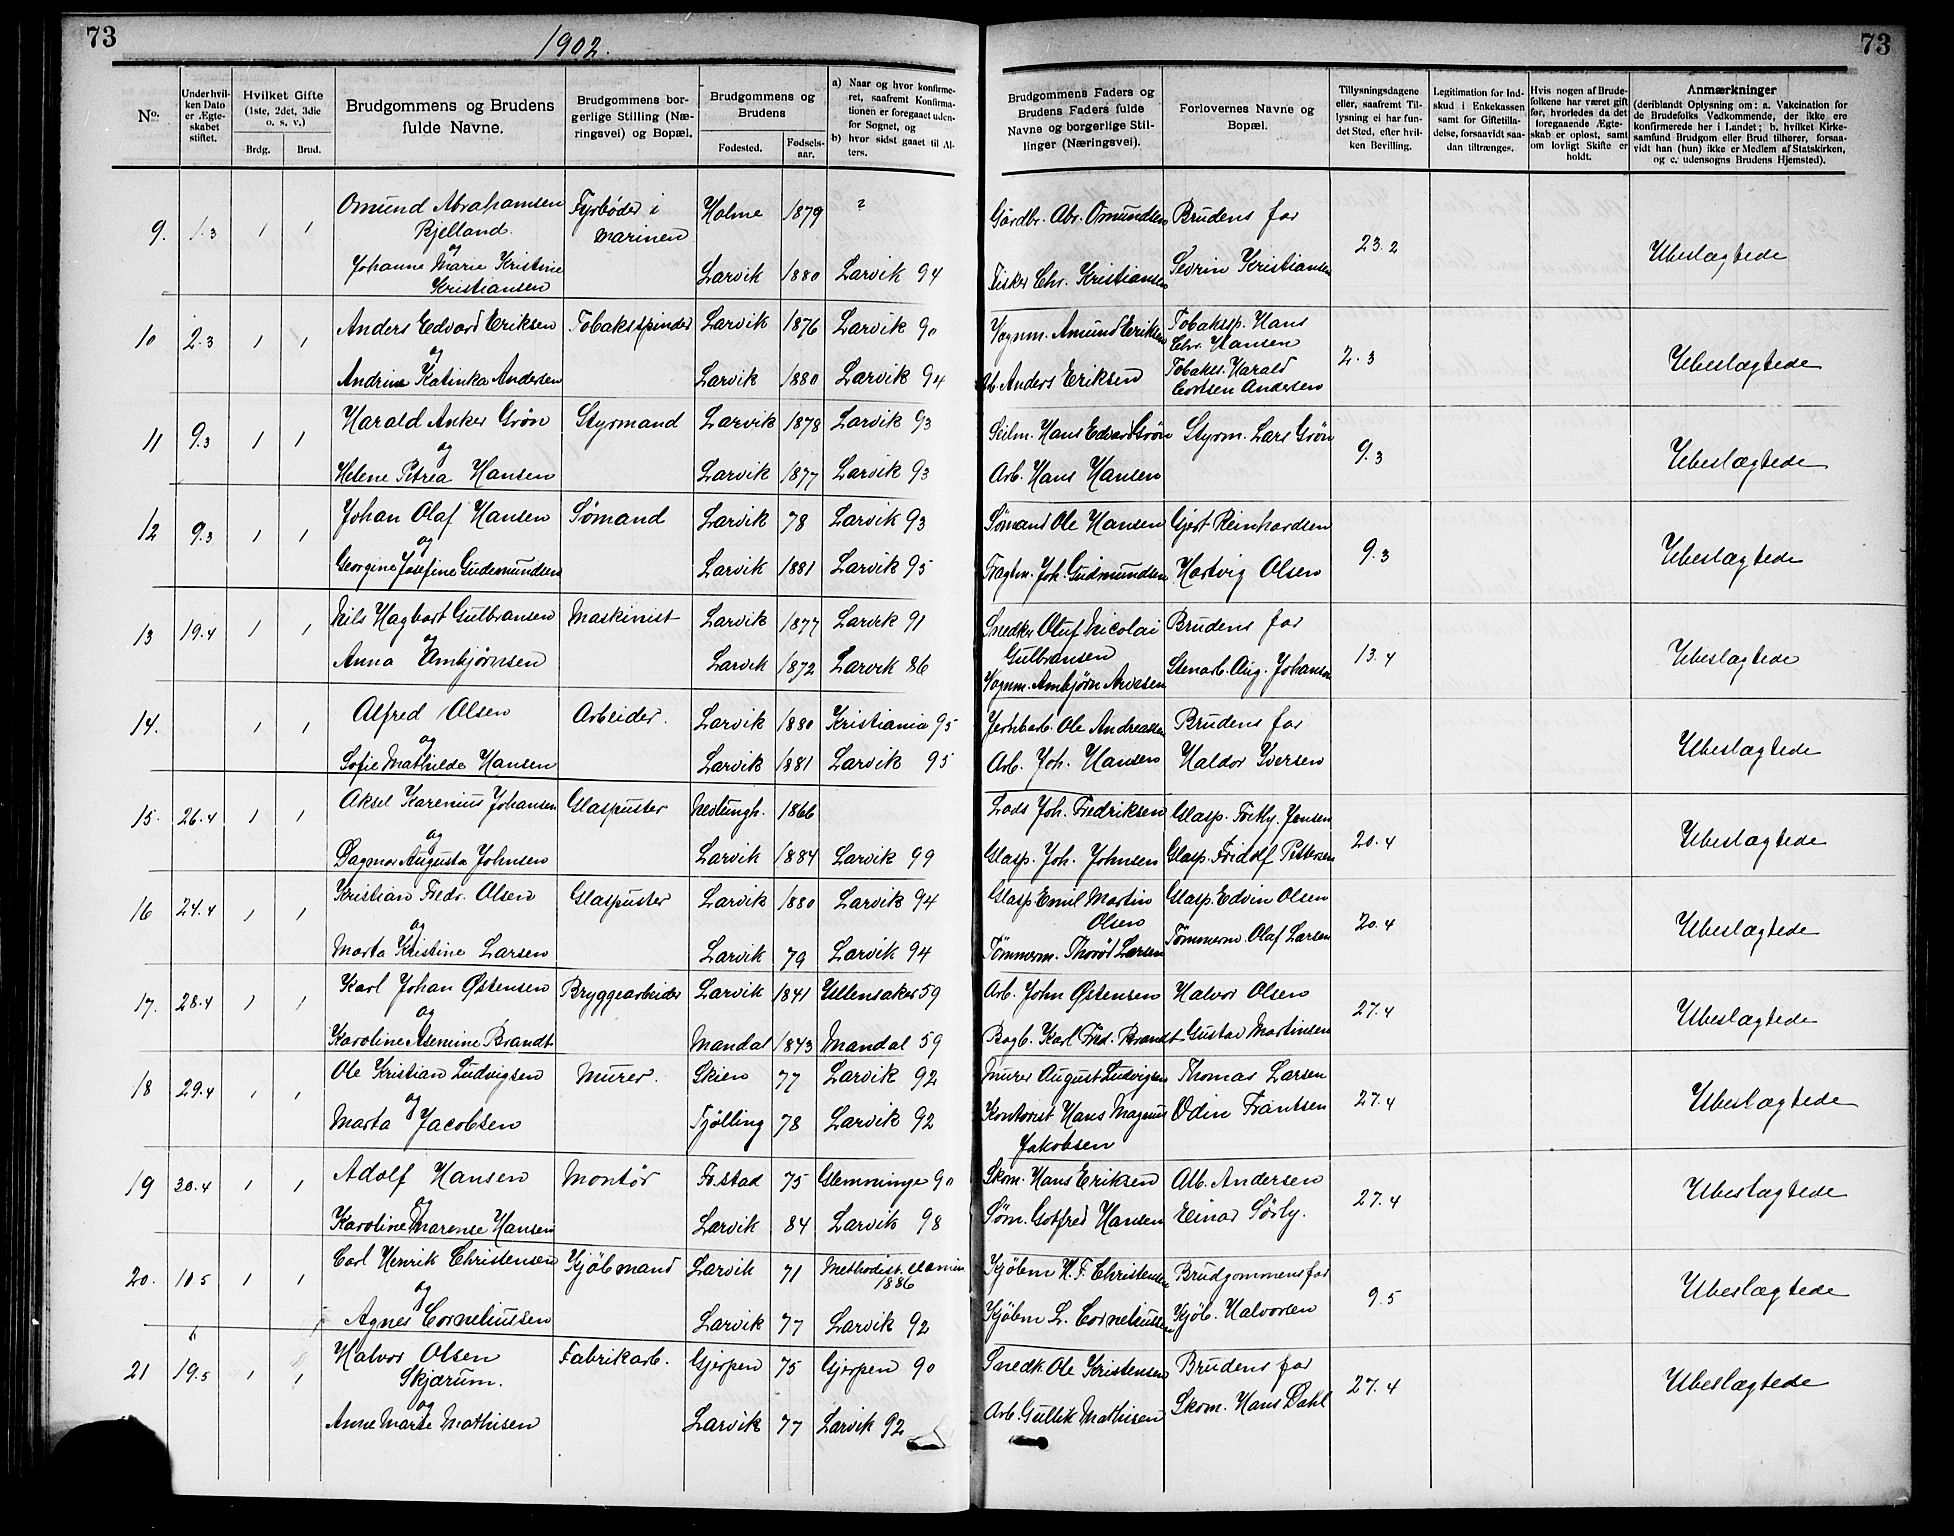 73
1902.
73
No.
Under hvilken Dato er Ægteskabet stiftet.
Hvilket Gifte (1ste, 2det, 3die o. s. v.)
Brdg.
Brud.
Brudgommens og Brudens fulde Navne.
Brudgommens borgerlige Stilling (Næringsvei) og Bopæl.
Brudgommens og Brudens
Fødested.
Fødselsaar.
a) Naar og hvor konfirmeret, saafremt Konfirmationen er foregaaet udenfor Sognet, og
b) hvor sidst gaaet til Alters.
Brudgommens Faders og Brudens Faders fulde Navne og borgerlige Stillinger (Næringsvei).
Forlovernes Navne og Bopæl.
Tillysningsdagene eller, saafremt Tillysning ei har fundet Sted, efter hvilken Bevilling.
Legitimation for Indskud i Enkekassen samt for Giftetilladelse, forsaavidt saadan tiltrænges.
Hvis nogen af Brudefolkene har været gift før, hvorledes da det foregaaende Ægteskab er opløst, samt om lovligt Skifte er holdt.
Anmærkninger
(deriblandt Oplysning om: a. Vakcination for de Brudefolks Vedkommende, der ikke ere konfirmerede her i Landet; b. hvilket Kirkesamfund Brudgom eller Brud tilhører, forsaavidt han (hun) ikke er Medlem af Statskirken, og c. udensogns Brudens Hjemsted).
9. 1.3 1 1 Omund Abrahamsen Fyrbøder i Holme 1879 ? Gårdbr. Abr. Omundsen Brudens far 23.2 Ubeslægtede
Bjelland. marinen
og
Johanne Marie Kristine Larvik 1880 Larvik 94 Fisker Chr. Kristiansen Sevrin Kristiansen
Kristiansen
10 2.3 1 1 Anders Edvard Eriksen Tobaksspinder Larvik 1876 Larvik 90 Vognm. Amund Eriksen Tobakssp. Hans 2.3 Ubeslægtede
Chr. Hansen
og
Andrine Katinka Andersen Larvik 1880 Larvik 94 Arb. Anders Eriksen Tobakss. Harald
Andersen
11 9.3 1 1 Harald Anker Grøn Styrmand Larvik 1878 Larvik 93 Seilm. Hans Edvard Grøn Styrm. Lars Grøn 9.3 Ubeslægtede
og
Helene Petrea Hansen Larvik 1877 Larvik 93 Arb. Hans Hansen
12 9.3 1 1 Johan Olaf Hansen Sømand Larvik 78 Larvik 93 Sømand Ole Hansen Gjert Reinhardsen 9.3 Ubeslægtede
og
Georgine Josefine Gudemundsen Larvik 1881 Larvik 95 Fragtm. Joh. Gudmundsen Hartvig Olsen
13 19.4 1 1 Nils Hagbart Gulbransen Maskinist Larvik 1877 Larvik 91 Snedker Oluf Nicolai Brudens far 13.4 Ubeslægtede
og Gulbransen
Anna Ambjørnsen Larvik 1872 Larvik 86 Vognm. Ambjørn Arvesen Stenarb. Aug. Johansen
14. 1 1 Alfred Olsen Arbeider. Larvik 1880 Kristiania 95 Jernbarb. Ole Andreassen Brudens far Ubeslægtede
og
Sofie Mathilde Hansen Larvik 1881 Larvik 95 Arb. Joh. Hansen Haldor Iversen
15. 26.4 1 1 Aksel Karenius Johansen Glaspuster Nevlungh. 1866 Lods Joh. Fredriksen Glasp. Jensen 20.4 Ubeslægtede
og
Dagmar Augusta Johnsen Larvik 1884 Larvik 99 Glasp. Joh. Johnsen Glasp. Fridolf Pettersen
16 24.4 1 1 Kristian Fredr. Olsen Glaspuster Larvik 1880 Larvik 94 Glasp. Emil Martin Glasp. Edvin Olsen 20.4 Ubeslægtede
og Olsen
Marta Kristine Larsen Larvik 79 Larvik 94 Tømmerm. Larsen Tømmerm. Olaf Larsen
17. 28.4 1 1 Karl Johan Østensen Bryggearbeider Larvik 1841 Ullensaker 59 Arb. John Østensen Halvor Olsen 27.4 Ubeslægtede
og
Karoline Asemine Brandt Mandal 1843 Mandal 59 Bogb. Karl Fred. Brandt Gustav Martinsen
18 29.4 1 1 Ole Kristian Ludvigsen Murer. Skien 77 Larvik 92 Murer August Ludvigsen Thomas Larsen 27.4 Ubeslægtede
og
Marta Jacobsen Tjølling 78 Larvik 92 Kontorist Hans Magnus Odin Frantsen
Jakobsen
19 30.4 1 1 Adolf Hansen Montør Fr.stad 75 Glemminge 90 Skom. Hans Eriksen Alb. Andersen 27.4 Ubeslægtede
og
Karoline Marense Hansen Larvik 84 Larvik 98 Søm. Gotfred Hansen Einar Sørly.
20. 10.5 1 1 Carl Henrik Christensen Kjøbmand Larvik 71 Methodist. 1886 Kjøbm H. F. Christensen Brudgommens far 9.5 Ubeslægtede
og
Agnes Corneliussen Larvik 77 Larvik 92 Kjøbm L. Corneliussen Kjøb. Halvorsen
21 19.5 1 1 Halvor Olsen Fabrikarb. Gjerpen 75 Gjerpen 90 Snedk. Ole Kristensen Brudens far 27.4 Ubeslægtede
Skjærum.
og
Anne Marie Mathisen Larvik 77 Larvik 92 Arb. Gullik Mathisen Skom. Hans Dahl